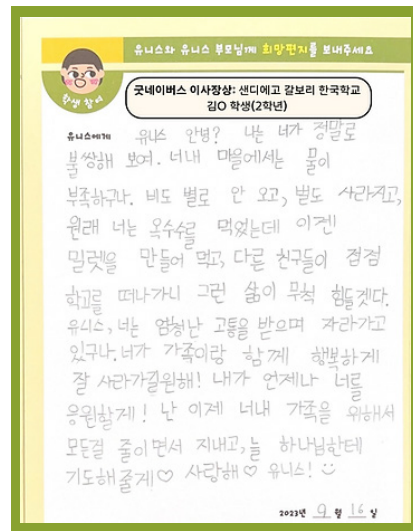 유니스와 유니스 부모님께 희망편지를 보내주세요
학생 참여
굿네이버스 이사장상: 샌디에고 갈보리 한국학교
김O 학생(2학년)
유니스에게 유니스 안녕? 나는 너가 정말로
불쌍해 보여. 너내 마을에서는 물이
부족하구나. 비도 별로 안 오고, 벌도 사라지고,
원래 너는 옥수수를 먹었는데 이젠
밀렛을 만들어 먹고, 다른 친구들이 점점
학교를 떠나가니 그런 삶이 무척 힘들겟다.
유니스, 너는 엄청난 고통을 받으며 자라가고
있구나. 너가 가족이랑 함께 행복하게
잘 사라가길원해! 내가 언제나 너를
응원할게! 난 이제 너내 가족을 위해서
모든걸 줄이면서 지내고, 늘 하나님한테
기도해줄게♡ 사랑해♡ 유니스!
2023년 9 월 16 일